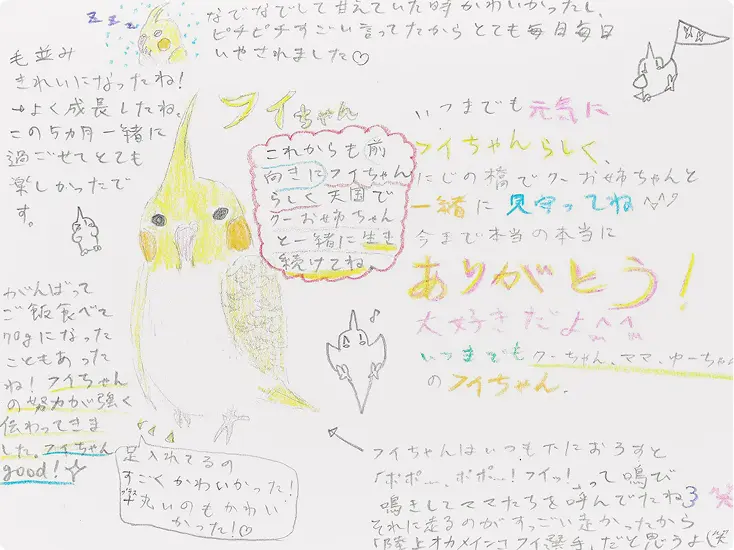 zzz
なでなでして甘えていた時かわいかったし、
ピチピチすごい言ってたからとても毎日毎日
いやされました♡
毛並み
きれいになったね!
→よく成長したね。
この5カ月一緒に
過ごせてとても
楽しかったで
す。
フイちゃん
これからも前
向きにフイちゃん
らしく天国で
クーお姉ちゃん
と一緒に生き
続けてね。
いつまでも元気に
フイちゃんらしく、
にじの橋でクーお姉ちゃんと
一緒に見守ってね
今まで本当の本当に
ありがとう!
大好きだよ^^
いつまでもクーちゃん、ママ、ゆーちゃん
のフイちゃん。
がんばって
ご飯食べて
70gになった
こともあった
ね!フイちゃん
の努力が強く
伝わってきま
した。フイちゃん
good!
足入れてるの
すごくかわいかった!
丸いのもかわい
かった!♡
フイちゃんはいつも下におろすと
「ポポ…、ポポ…!フイッ!」って鳴び
鳴きしてママたちを呼んでたね 笑
それに走るのがすっごい速かったから
「陸上オカメインコフイ選手」だと思うよ(笑